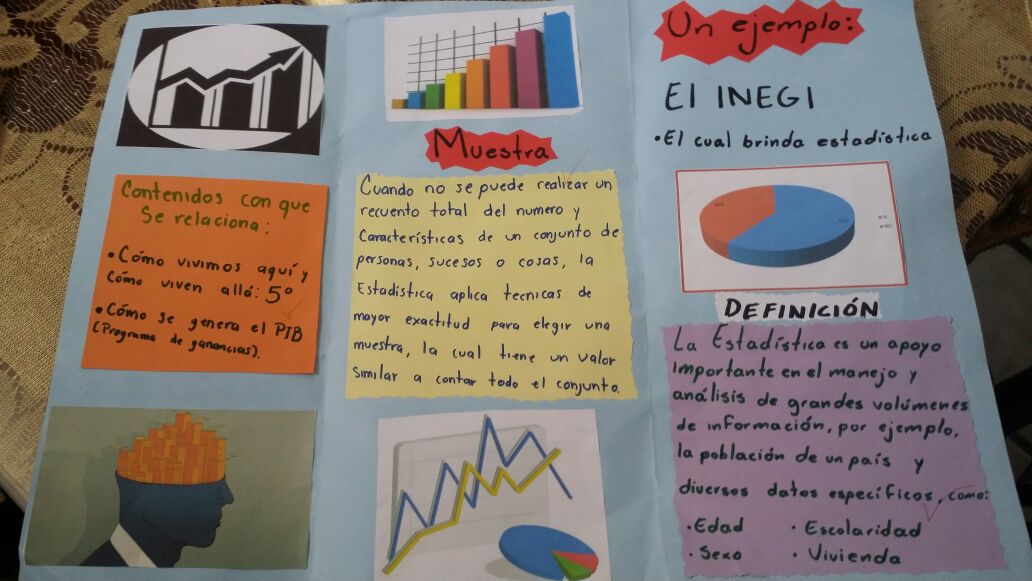 Contenidos con que
Se relaciona:
• Cómo vivimos aquí y
Cómo viven allá: 5º
• Cómo se genera el PIB
(Programa de ganancias).
Muestra
Cuando no se puede realizar un
recuento total del numero y
Características de un conjunto de
personas, sucesos o cosas, la
Estadística aplica tecnicas de
mayor exactitud para elegir una
muestra, la cual tiene un valor
similar a contar todo el conjunto.
Un ejemplo:
El INEGI
• El cual brinda estadística
DEFINICIÓN
La Estadística es un apoyo
importante en el manejo y
análisis de grandes volúmenes
de información, por ejemplo,
la población de un país y
diversos datos específicos, como:
• Edad • Escolaridad
• Sexo • Vivienda